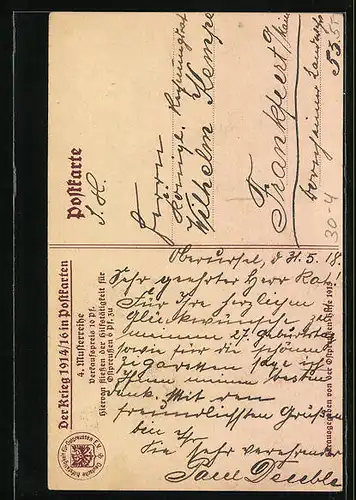 Der Krieg 1914/16 in Postkarten
4. Musterreihe
Verkaufspreis 10 Pf.
Hiervon fließen der Hilfstätigkeit für
Ostpreußen 6 Pf. zu
Postkarte
S. H.
Herrn
Königl. Rechnungsrat
Wilhelm Kempe
Frankfurt a/Main
Bornheimer Landstr.
53.55
30-4
Oberursel, d 31.5.18.
Sehr geehrter Herr Rat!
Für Ihre herzlichen
Glückwünsche zu
meinem 27. Geburtstag
sowie für die schönen
Zigaretten sage ich
Ihnen meinen besten
Dank. Mit den
freundlichsten Grüßen
bin ich
Ihr Sie sehr verehrender
Paul
Herausgegeben von der Ostpreußenhilfe 1915